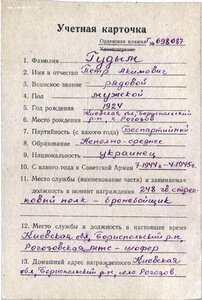 Учетная карточка
Орденская книжка № 698087
1. Фамилия Гудым
2. Имя и отчество Петр Акимович
3. Воинское звание рядовой
4. Пол мужской
5. Год рождения 1924
Киевская обл, Бориспольский
6. Место рождения р-н, с. Рогозов
7. Партийность (с какого года) Беспартийный
8. Образование Неполно-среднее
9. Национальность украинец
10. С какого года в Советской Армии 7.1944г-4.1945г.
11. Место службы (наименование части) и занимаемая
должность в момент награждения 248 гв. стрел
ковый полк - бронебойщик
12. Место службы и должность в настоящее время
Киевская обл, Бориспольский р-н,
Рогозовская мтс - шофер
13. Домашний адрес награжденного Киевская
обл, Бориспольский р-н, село Рогозов.